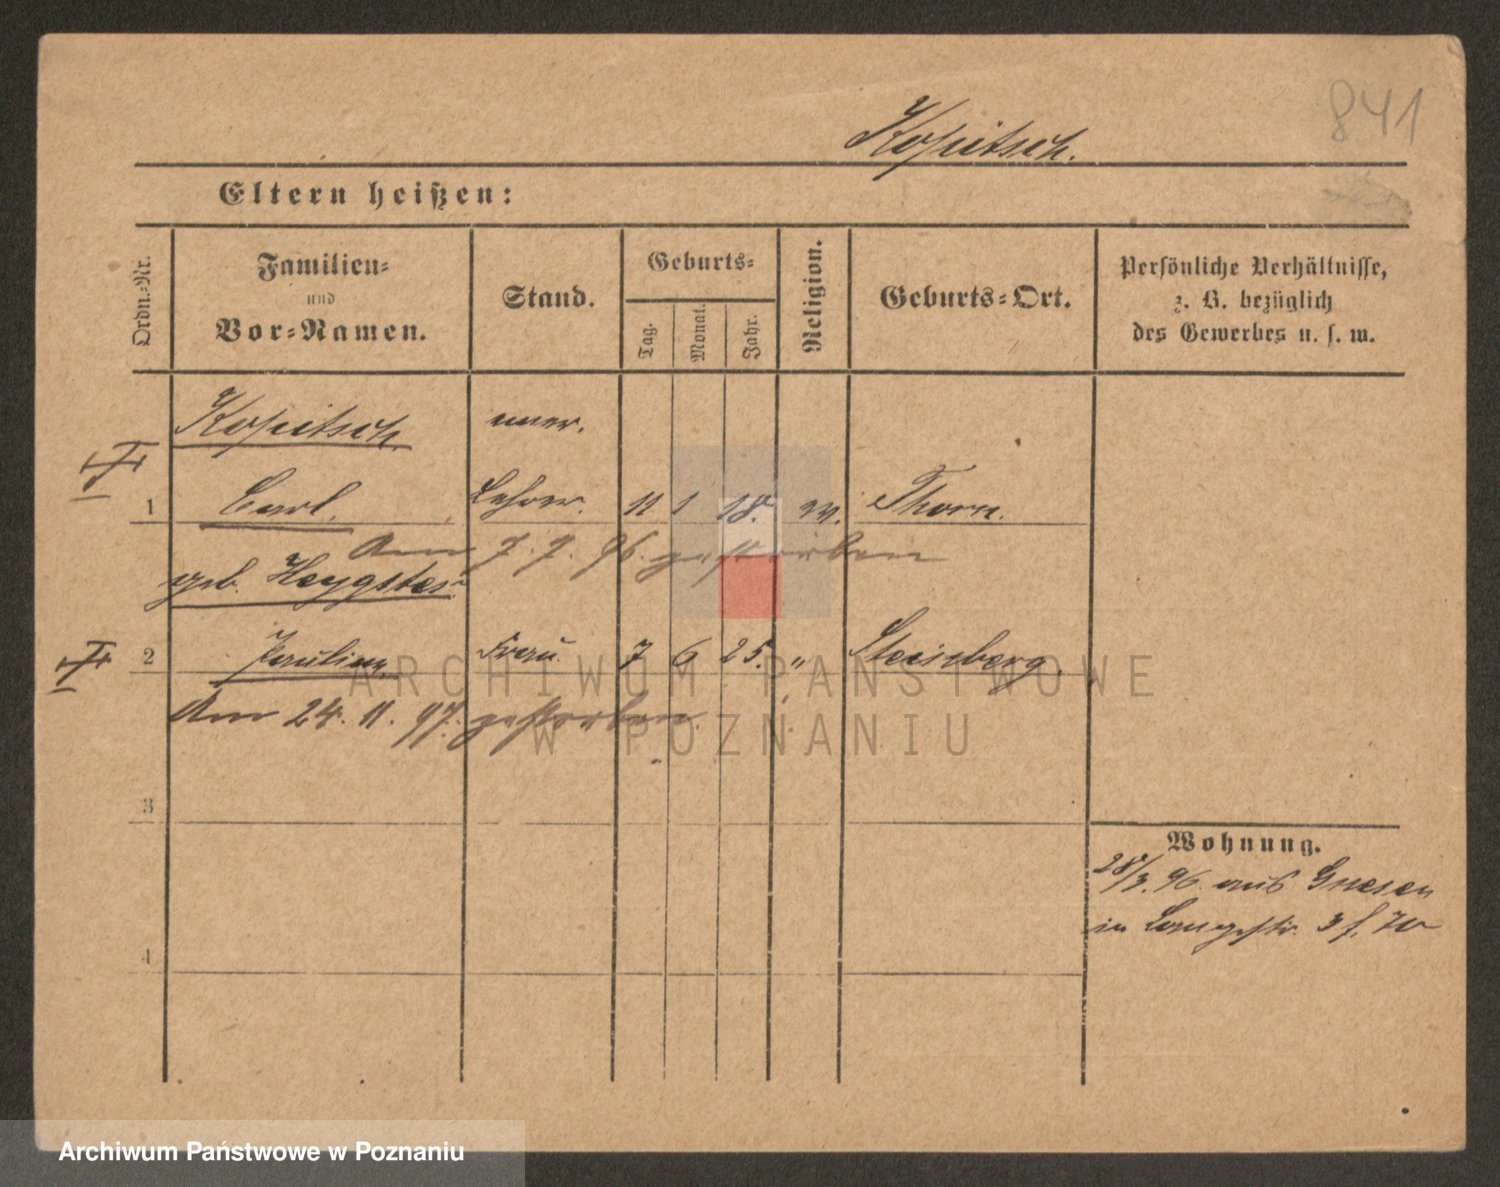 841
Kopitsch.
Eltern heißen:
Ordn.-Nr.
Familien-
und
Vor-Namen.
Stand.
Geburts-
Tag.
Monat.
Jahr.
Religion.
Geburts-Ort.
Persönliche Verhältnisse,
z. B. bezüglich
des Gewerbes u. s. w.
Kopitsch. emer.
1 Carl. Lehrer. 11 1 18. ev. Thorn.
Am 7. 9. 96. gestorben
geb. Heygster.
2 Pauline. Frau. 7 6 25. „ Steinberg.
Am 24. 11. 97. gestorben.
3
4
Wohnung.
28/3. 96. aus Gnesen
in Langestr. 3
ARCHIWUM PAŃSTWOWE
W POZNANIU
Archiwum Państwowe w Poznaniu